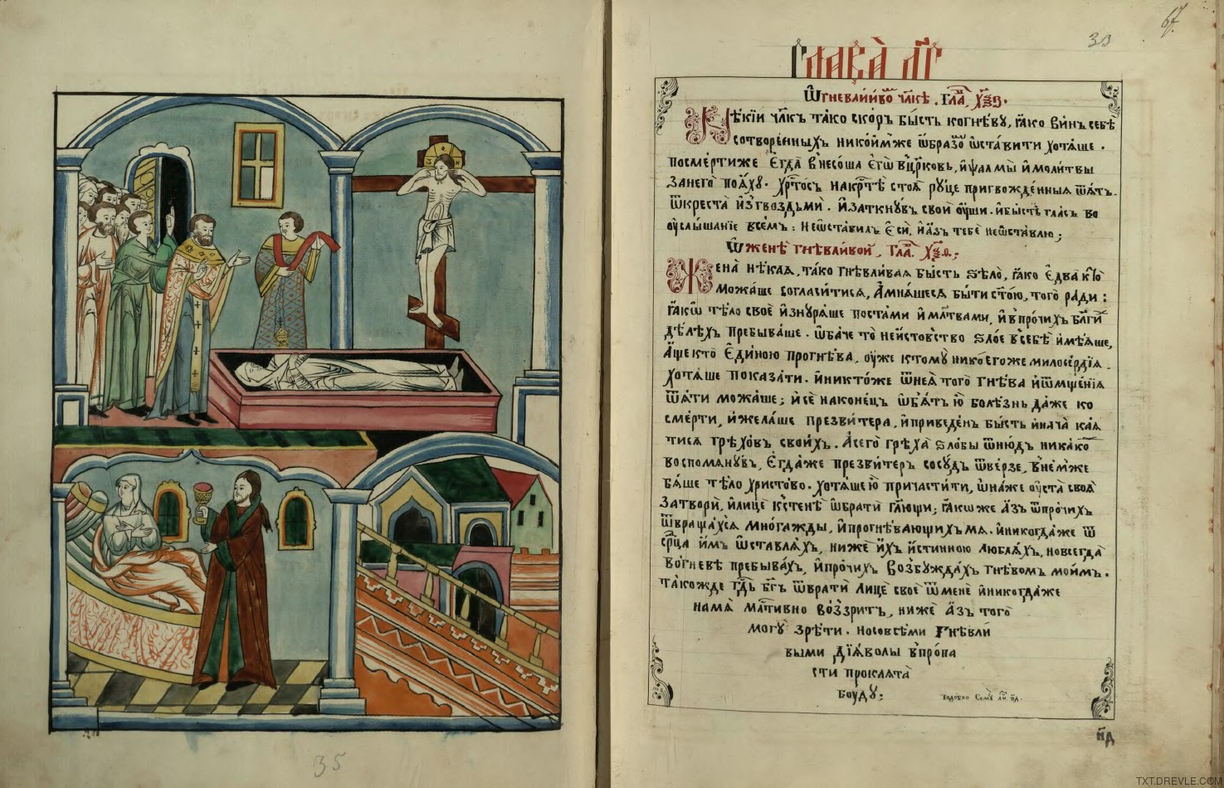 35
67
33
Глава лг
Ѿ гневли́и́воⷨ чл҃кѣ. Глаⷡ҇, х҃ѯз.
Нѣкїи чл҃къ та́ко ско́ръ бы́сть ко гнѣ́ву, ꙗ҆́ко ви́нъ себѣ
сотворе́нныхъ нико́имже ѡ҆́бразоⷨ ѡ҆ста́вити хотѧ́ше.
посме́рти же є҆гда̀ внесо́ша є҆го̀ в цр҃ковь, и҆ ѱалмы̀ и҆ моли́твы
за него̀ поѧ́ху. хрⷭ҇то́съ на крⷭ҇тѣ̀ стоѧ̀ ру́це пригвожде́нныѧ ѿѧ́тъ
ѿ креста̀ и҆з гвоздьмѝ. и҆ заткну́въ своѝ оу҆́ши. и҆ бы́сть гла́съ во
оу҆слы́шанїе всѣ́мъ: не ѡ҆ста́вилъ є҆сѝ, и҆ а҆́зъ тебѣ̀ не ѡ҆ста́влю;
Ѿ женѣ̀ гнѣвли́вой, Глаⷡ҇, х҃ѯи.
Жена̀ нѣ́каѧ, та́ко гнѣвли́ваѧ бы́сть ѕѣло̀, ꙗ҆́ко є҆два̀ кто̀
можа́ше согласи́тисѧ, А҆ мнѧ́шесѧ бы́ти ст҃о́ю, того̀ ра́ди:
ꙗ҆́кѡ тѣ́ло своѐ и҆знурѧ́ше поста́ми и҆ мл҃твами, и҆ в про́чихъ бл҃ги́хъ
дѣ́лѣхъ пребыва́ше. ѡ҆ба́че то̀ неи́стовство ѕло́е в себѣ̀ и҆мѣ́ѧше,
А҆́ще кто̀ є҆ди́ною прогнѣ́ва, оу҆́же к тому̀ никоего́же милосе́рдїѧ
хотѧ́ше показа́ти. и҆ никто́же ѿ неѧ̀ того̀ гнѣ́ва и҆ ѿмще́нїѧ
ѿѧ́ти можа́ше; и҆ сѐ наконе́цъ ѡ҆б̾ѧ́тъ ю҆̀ болѣ́знь да́же ко
сме́рти, и҆ жела́ше презви́тера, и҆ приведе́нъ бы́сть и҆ нача̀ ка́ѧ
тисѧ грѣхо́въ свои́хъ. А҆ сего̀ грѣха̀ ѕло́бы ѿню́дъ ника́ко
воспомѧну́въ, Є҆гда́же презви́теръ сосу́дъ ѿве́рзе, в не́мже
бѧ́ше тѣ́ло христо́во. хотѧ́ше ю҆̀ причасти́ти, ѻ҆на́же оу҆ста̀ своѧ̀
затворѝ, и҆ лицѐ к стенѣ̀ ѡ҆братѝ гл҃ющи; ꙗ҆́коже а҆́зъ ѿ про́чихъ
ѿвраща́хсѧ мно́гажды, и҆ прогнѣва́ющихъ мѧ̀. и҆ никогда́же ѿ
срⷣца и҆̀мъ ѡ҆ставлѧ́хъ, ниже́ и҆́хъ и҆́стинною любла́хъ, но всегда̀
во гне́вѣ пребыва́хъ, и҆ про́чихъ возбужда́хъ гнѣ́вомъ мои́мъ.
та́кожде гдⷭ҇ь бг҃ъ ѿвратѝ лицѐ своѐ ѿ менѐ и҆ никогда́же
на мѧ̀ млⷭ҇тивно воззри́тъ, ниже́ а҆́зъ того̀
могу̀ зрѣ́ти. но со всѣ́ми гнѣвли
выми дїѧ́волы в пропа
сти проклѧта̀
боу́ду;
Подобно Сему
н҃д
TXT.DREVLE.COM